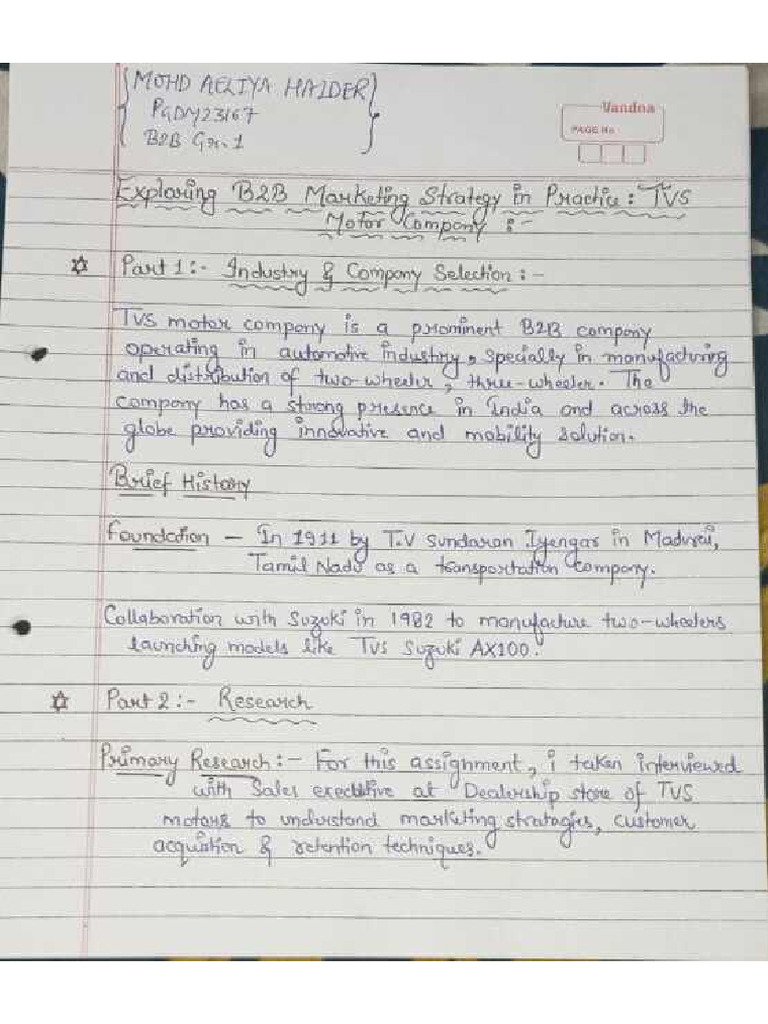 MOHD AELIYA HAIDER
PGDM23167
B2B Gr. 1
Vandna
PAGE No
Exploring B2B Marketing Strategy in Practice: TVS
Motor Company :-
Part 1:- Industry & Company Selection:-
TVS motor company is a prominent B2B company
operating in automotive industry, specially in manufacturing
and distribution of two-wheeler, three-wheeler. The
company has a strong presence in India and across the
globe providing innovative and mobility solution.
Brief History
Foundation - In 1911 by T.V Sundaran Iyengar in Madurai,
Tamil Nadu as a transportation company.
Collaboration with Suzuki in 1982 to manufacture two-wheelers
launching models like TVS Suzuki AX100.
Part 2:- Research
Primary Research:- For this assignment, i taken interviewed
with Sales executive at Dealership store of TVS
motors to understand marketing stratagies, customer
acquistion & retention techniques.